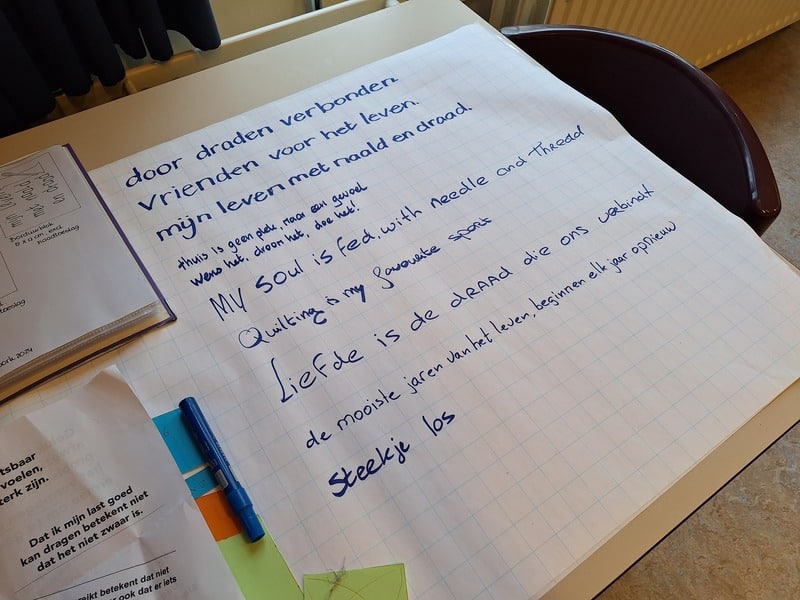 door draden verbonden
vrienden voor het leven.
mijn leven met naald en draad.
thuis is geen plek, maar een gevoel
wens het, droom het, doe het!
MY SOUL is FED, with NEEDLE and THREAD
Quilting is my favourite sport
LieFde is de DRAAD die ons verbindt
de mooiste jaren van het leven, beginnen elk jaar opnieuw
Steekje los
Borduurblok
naadtoeslag
toeslag
2024
tsbaar
voelen,
terk zijn.
Dat ik mijn last goed
kan dragen betekent niet
dat het niet zwaar is.
reikt betekent dat niet
ook dat er iets